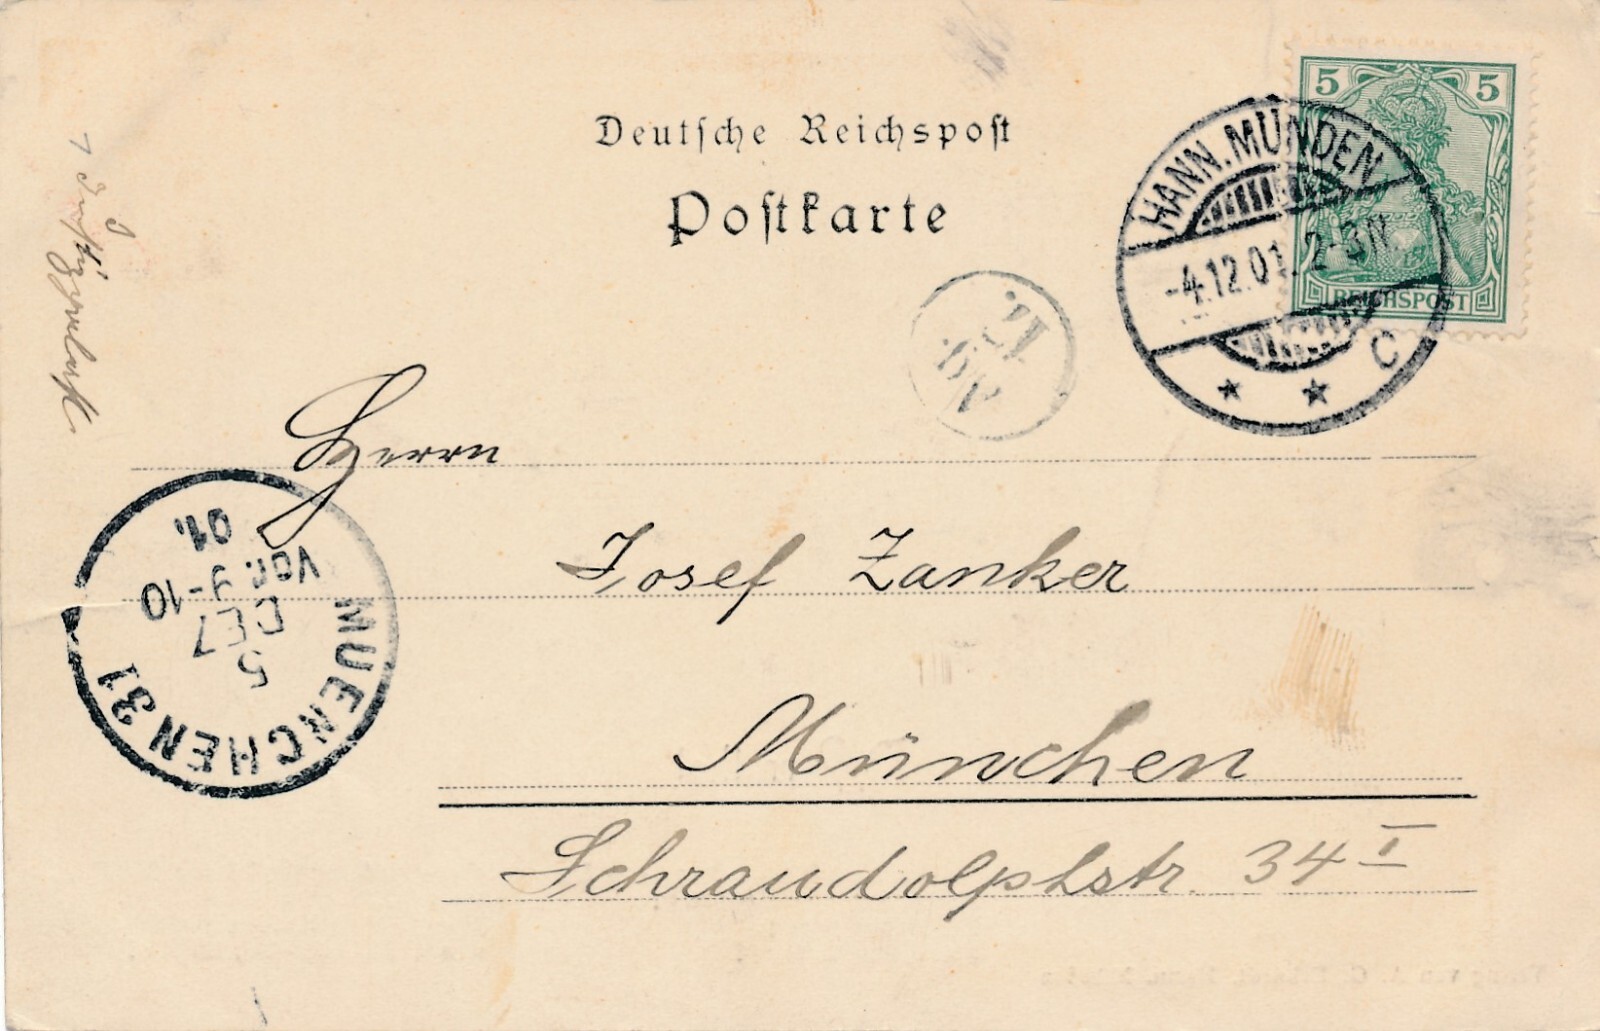 Deutsche Reichspost
Postkarte
5 5
REICHSPOST
HANN. MÜNDEN
-4.12.01. 2-3N.
* * C
Herrn
Josef Zanker
München
Schraudolphstr. 34 I
MUENCHEN 31
5
DEZ
Vor. 9-10
01.